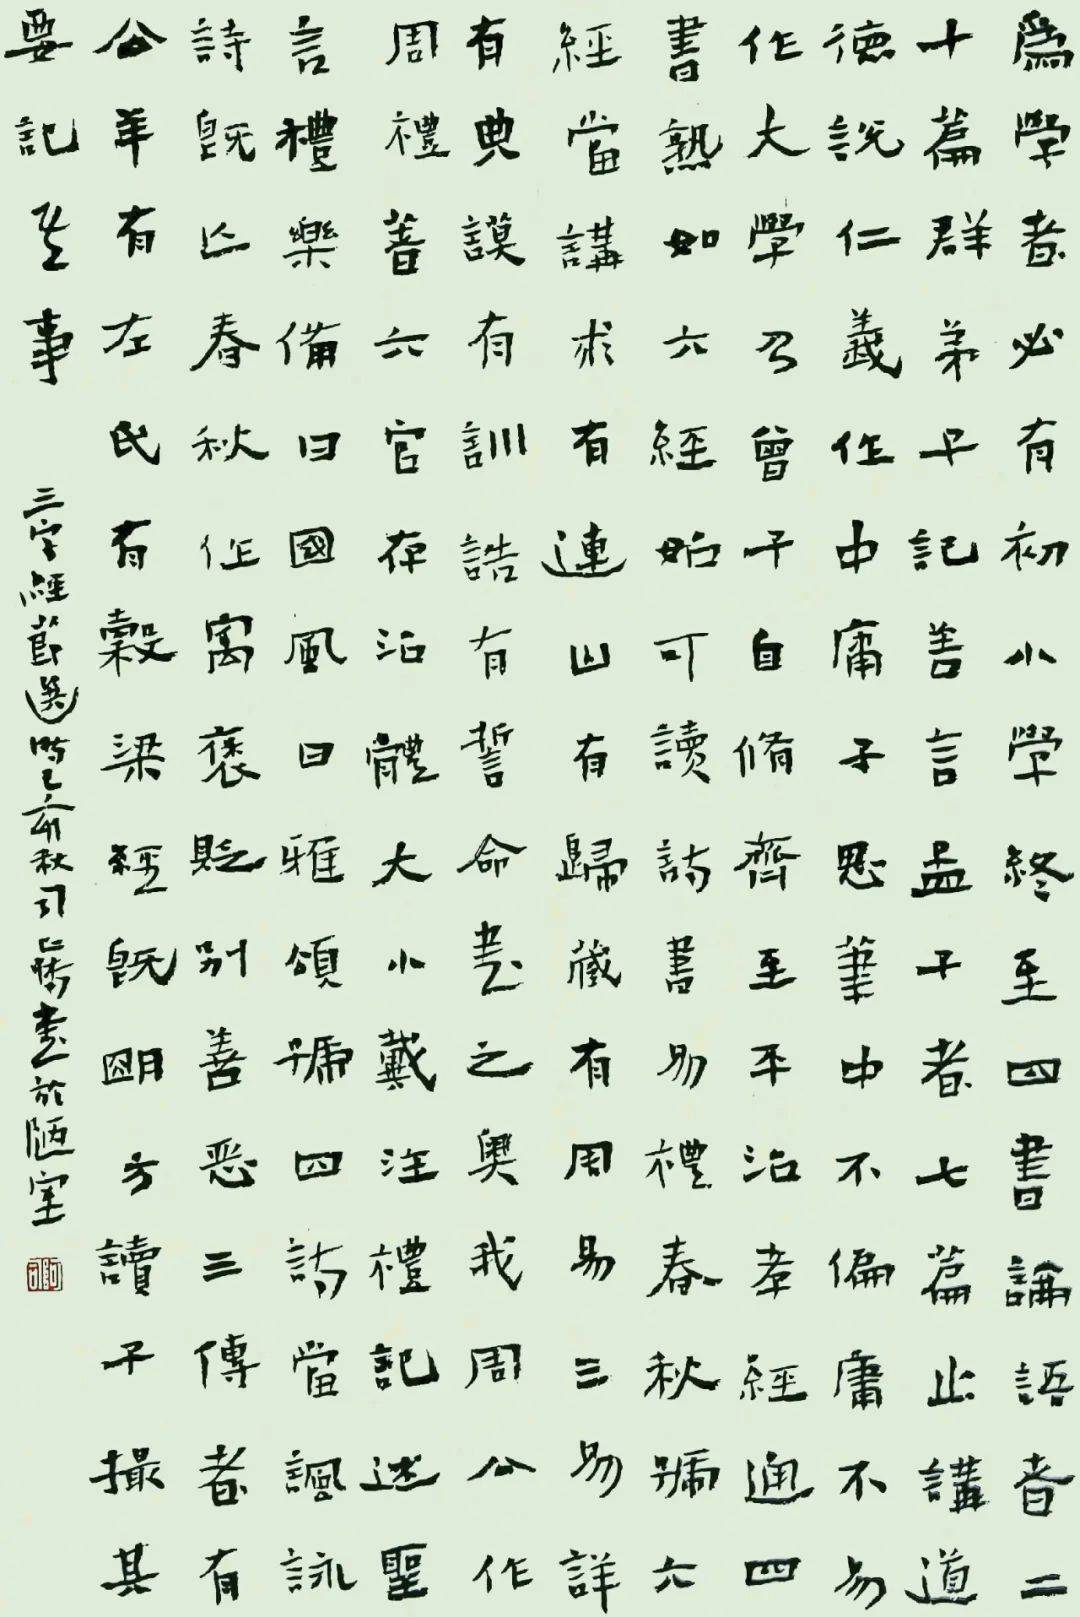 爲學者必有初小學終至四書論語者二
十篇群弟子記善言孟子者七篇止講道
德說仁義作中庸子思筆中不偏庸不易
作大學乃曾子自脩齊至平治孝經通四
書熟如六經始可讀詩書易禮春秋號六
經當講求有連山有歸藏有周易三易詳
有典謨有訓誥有誓命書之奧我周公作
周禮著六官存治體大小戴注禮記述聖
言禮樂備曰國風曰雅頌號四詩當諷詠
詩既亡春秋作寓褒貶別善惡三傳者有
公羊有左氏有穀梁經既明方讀子撮其
要記其事
三字經節選時己亥秋書於陋室